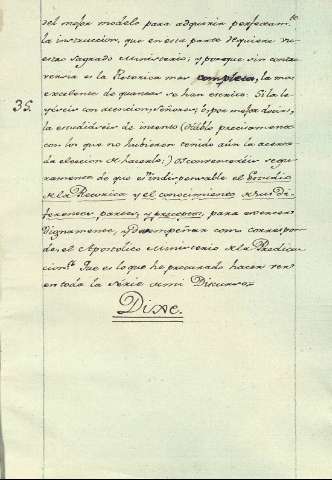 del mejor modelo para adquirir perfectamte
la instruccion, que en esta parte requiere nu-
estro Sagrado Ministerio; y porque sin contro-
versia es la Retorica mas completa, la mas
excelente de quantas se han escrito. Si la le-
35.
yereis con atencion, Señores, ò, por mejor decir,
la estudiareis de intento (hablo precisamente
con los que no hubieren tenido aún la acerta-
da eleccion de hacerlo;) os convencereis segu-
ramente de que es indispensable el Estudio
de la Retorica y el conocimiento de sus di-
ferencias, partes, y preceptos, para exercer
dignamente, y desempeñar como correspon-
de, el Apostolico Ministerio de la Predica-
cion. Que es lo que he procurado hacer ver
en toda la serie de mi Discurso.
Dixe.